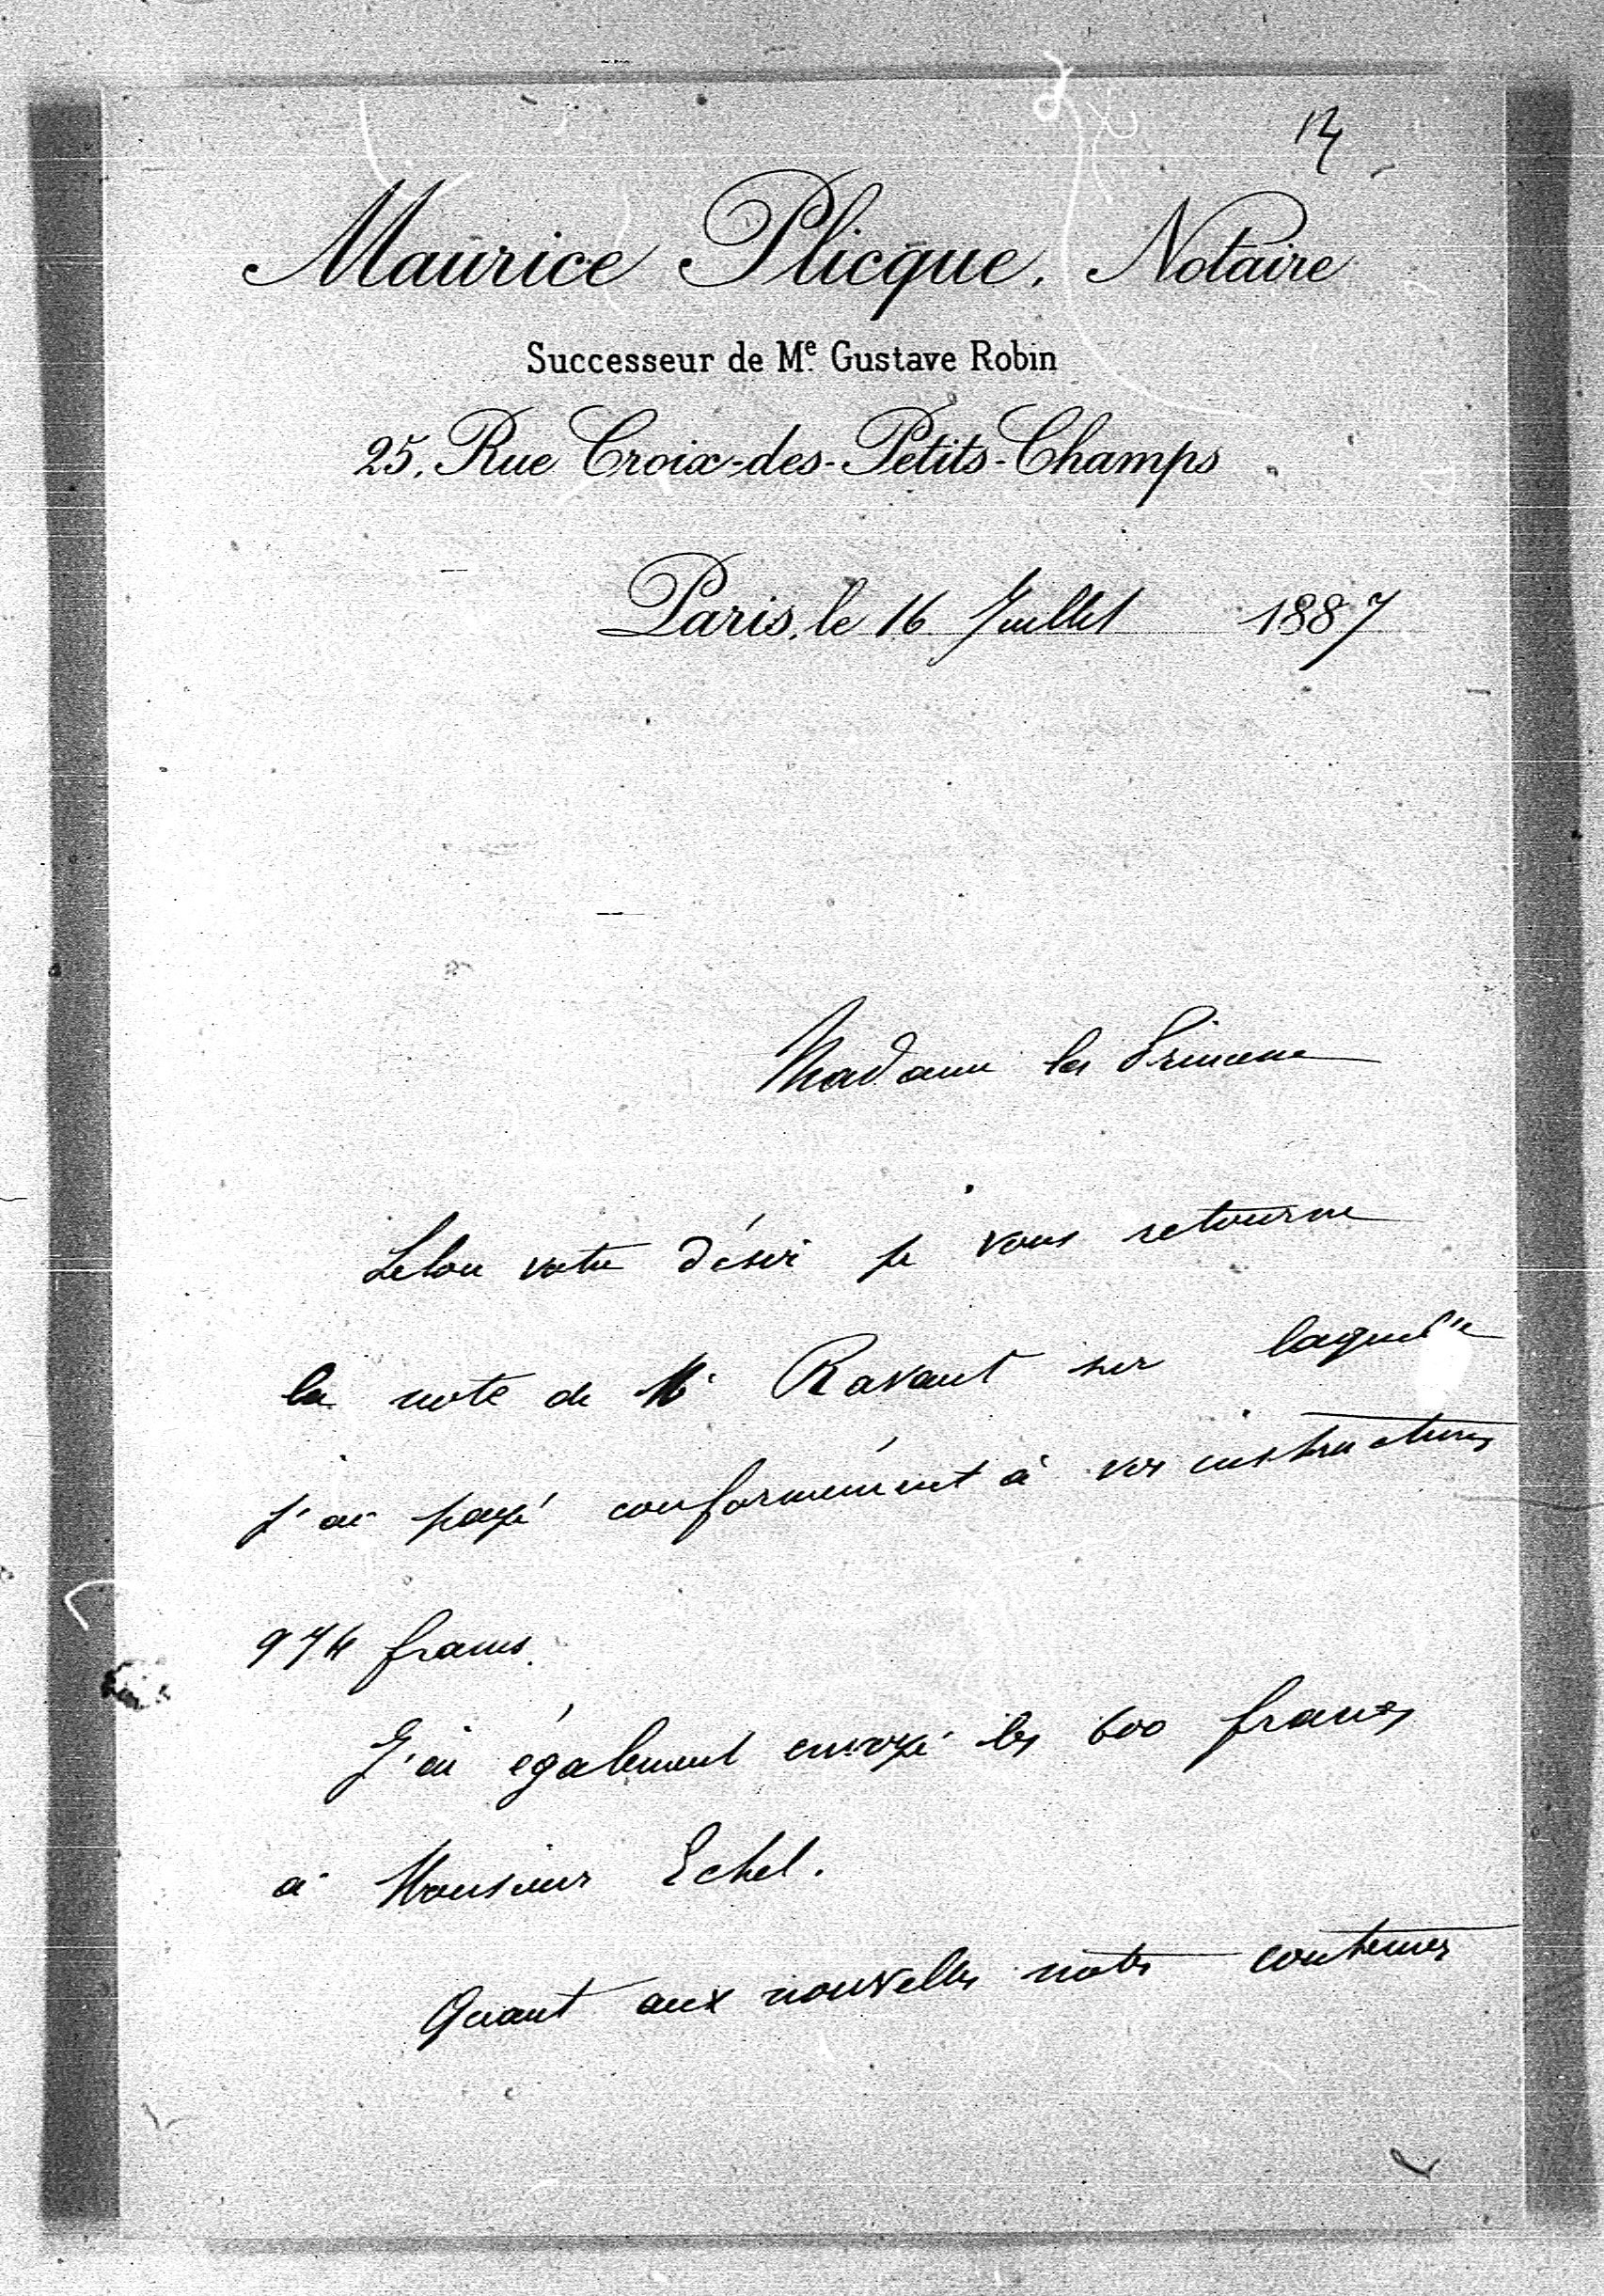 Maurice Plicque, Notaire
Successeur de Mᵉ Gustave Robin
25, Rue Croix-des-Petits-Champs
Paris, le 16 Juillet 1887
Madame la Princesse
Selon votre désir je vous retourne
la note de Mr Ravaut sur laquelle
j'ai payé conformément à vos instructions
974 francs.
J'ai également envoyé les 600 francs
à Monsieur Echel.
Quant aux nouvelles notes contenues